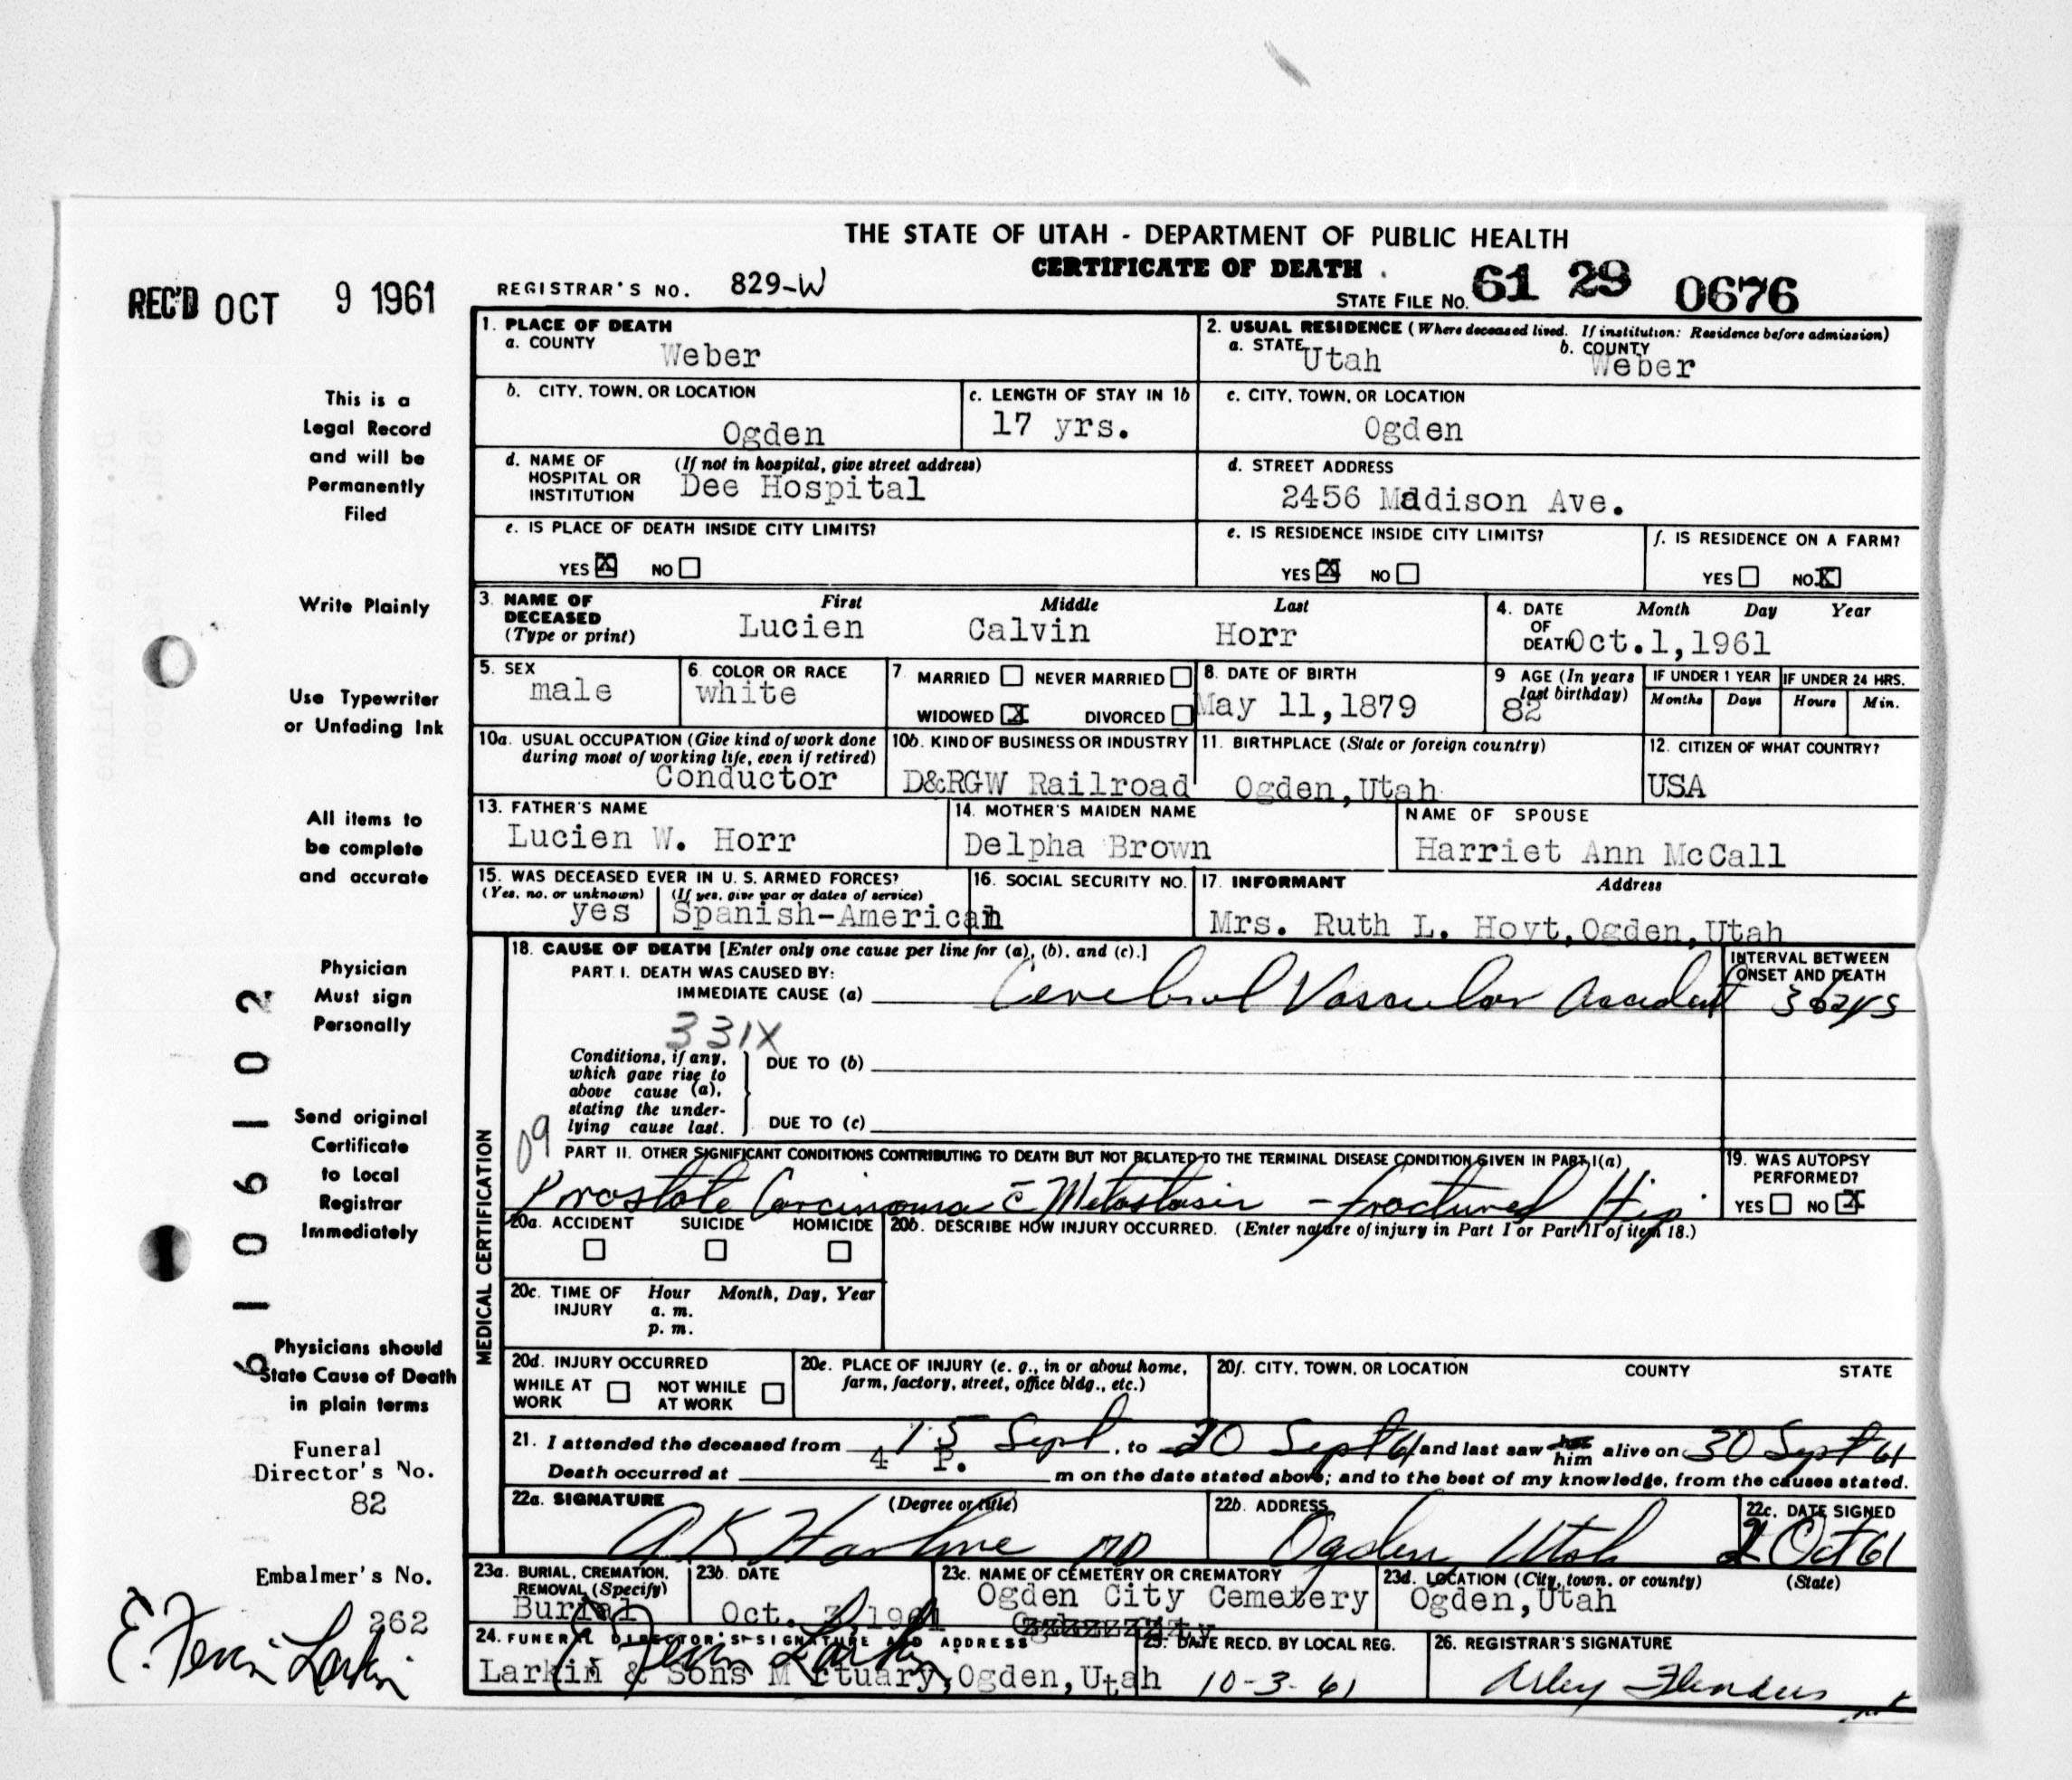 THE STATE OF UTAH - DEPARTMENT OF PUBLIC HEALTH
CERTIFICATE OF DEATH
REC'D OCT 9 1961
REGISTRAR'S NO. 829-W
STATE FILE NO. 61 29 0676
1. PLACE OF DEATH
a. COUNTY Weber
2. USUAL RESIDENCE (Where deceased lived. If institution: Residence before admission)
a. STATE Utah b. COUNTY Weber
b. CITY, TOWN, OR LOCATION Ogden
c. LENGTH OF STAY IN 1b 17 yrs.
c. CITY, TOWN, OR LOCATION Ogden
d. NAME OF HOSPITAL OR INSTITUTION (If not in hospital, give street address) Dee Hospital
d. STREET ADDRESS 2456 Madison Ave.
e. IS PLACE OF DEATH INSIDE CITY LIMITS?
YES X NO
e. IS RESIDENCE INSIDE CITY LIMITS?
YES X NO
f. IS RESIDENCE ON A FARM?
YES NO X
3. NAME OF DECEASED (Type or print)
First Middle Last
Lucien Calvin Horr
4. DATE OF DEATH Month Day Year
Oct.1,1961
5. SEX male
6. COLOR OR RACE white
7. MARRIED NEVER MARRIED
WIDOWED X DIVORCED
8. DATE OF BIRTH May 11,1879
9 AGE (In years last birthday) 82
IF UNDER 1 YEAR Months Days
IF UNDER 24 HRS. Hours Min.
10a. USUAL OCCUPATION (Give kind of work done during most of working life, even if retired) Conductor
10b. KIND OF BUSINESS OR INDUSTRY D&RGW Railroad
11. BIRTHPLACE (State or foreign country) Ogden,Utah
12. CITIZEN OF WHAT COUNTRY? USA
13. FATHER'S NAME Lucien W. Horr
14. MOTHER'S MAIDEN NAME Delpha Brown
NAME OF SPOUSE Harriet Ann McCall
15. WAS DECEASED EVER IN U.S. ARMED FORCES?
(Yes, no, or unknown) yes (If yes, give war or dates of service) Spanish-American
16. SOCIAL SECURITY NO.
17. INFORMANT Address
Mrs. Ruth L. Hoyt,Ogden,Utah
MEDICAL CERTIFICATION
18. CAUSE OF DEATH [Enter only one cause per line for (a), (b), and (c).]
PART I. DEATH WAS CAUSED BY:
IMMEDIATE CAUSE (a) Cerebral Vascular Accident
INTERVAL BETWEEN ONSET AND DEATH
3 days
331X
Conditions, if any, which gave rise to above cause (a), stating the underlying cause last.
DUE TO (b)
DUE TO (c)
09
PART II. OTHER SIGNIFICANT CONDITIONS CONTRIBUTING TO DEATH BUT NOT RELATED TO THE TERMINAL DISEASE CONDITION GIVEN IN PART I(a)
Prostate Carcinoma c̄ Metastasis - fractured Hip.
19. WAS AUTOPSY PERFORMED?
YES NO X
20a. ACCIDENT SUICIDE HOMICIDE
20b. DESCRIBE HOW INJURY OCCURRED. (Enter nature of injury in Part I or Part II of item 18.)
20c. TIME OF INJURY Hour a. m. p. m. Month, Day, Year
20d. INJURY OCCURRED
WHILE AT WORK NOT WHILE AT WORK
20e. PLACE OF INJURY (e. g., in or about home, farm, factory, street, office bldg., etc.)
20f. CITY, TOWN, OR LOCATION COUNTY STATE
21. I attended the deceased from 15 Sept, to 30 Sept 61 and last saw her him alive on 30 Sept 61
Death occurred at 4 P. m on the date stated above; and to the best of my knowledge, from the causes stated.
22a. SIGNATURE (Degree or title)
22b. ADDRESS
22c. DATE SIGNED
MD Ogden, Utah 2 Oct 61
23a. BURIAL, CREMATION, REMOVAL (Specify) Burial
23b. DATE Oct. 3,1961
23c. NAME OF CEMETERY OR CREMATORY Ogden City Cemetery
23d. LOCATION (City, town, or county) (State) Ogden,Utah
24. FUNERAL DIRECTOR'S SIGNATURE AND ADDRESS
Larkin & Sons M rtuary,Ogden,Utah
25. DATE RECD. BY LOCAL REG.
10-3-61
26. REGISTRAR'S SIGNATURE
This is a
Legal Record
and will be
Permanently
Filed
Write Plainly
Use Typewriter
or Unfading Ink
All items to
be complete
and accurate
Physician
Must sign
Personally
Send original
Certificate
to Local
Registrar
Immediately
Physicians should
State Cause of Death
in plain terms
6106102
Funeral
Director's No.
82
Embalmer's No.
262